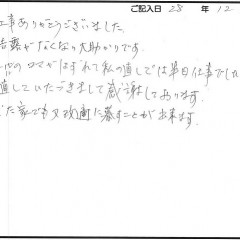 ご記入日 28 年 12
工事ありがとうございました。
苦労がなくなり大助かりです。
のコマがはずれて私の直しでは半日仕事でした
直していただきまして感謝しております。
た家でも又快適に暮すことが出来ます。